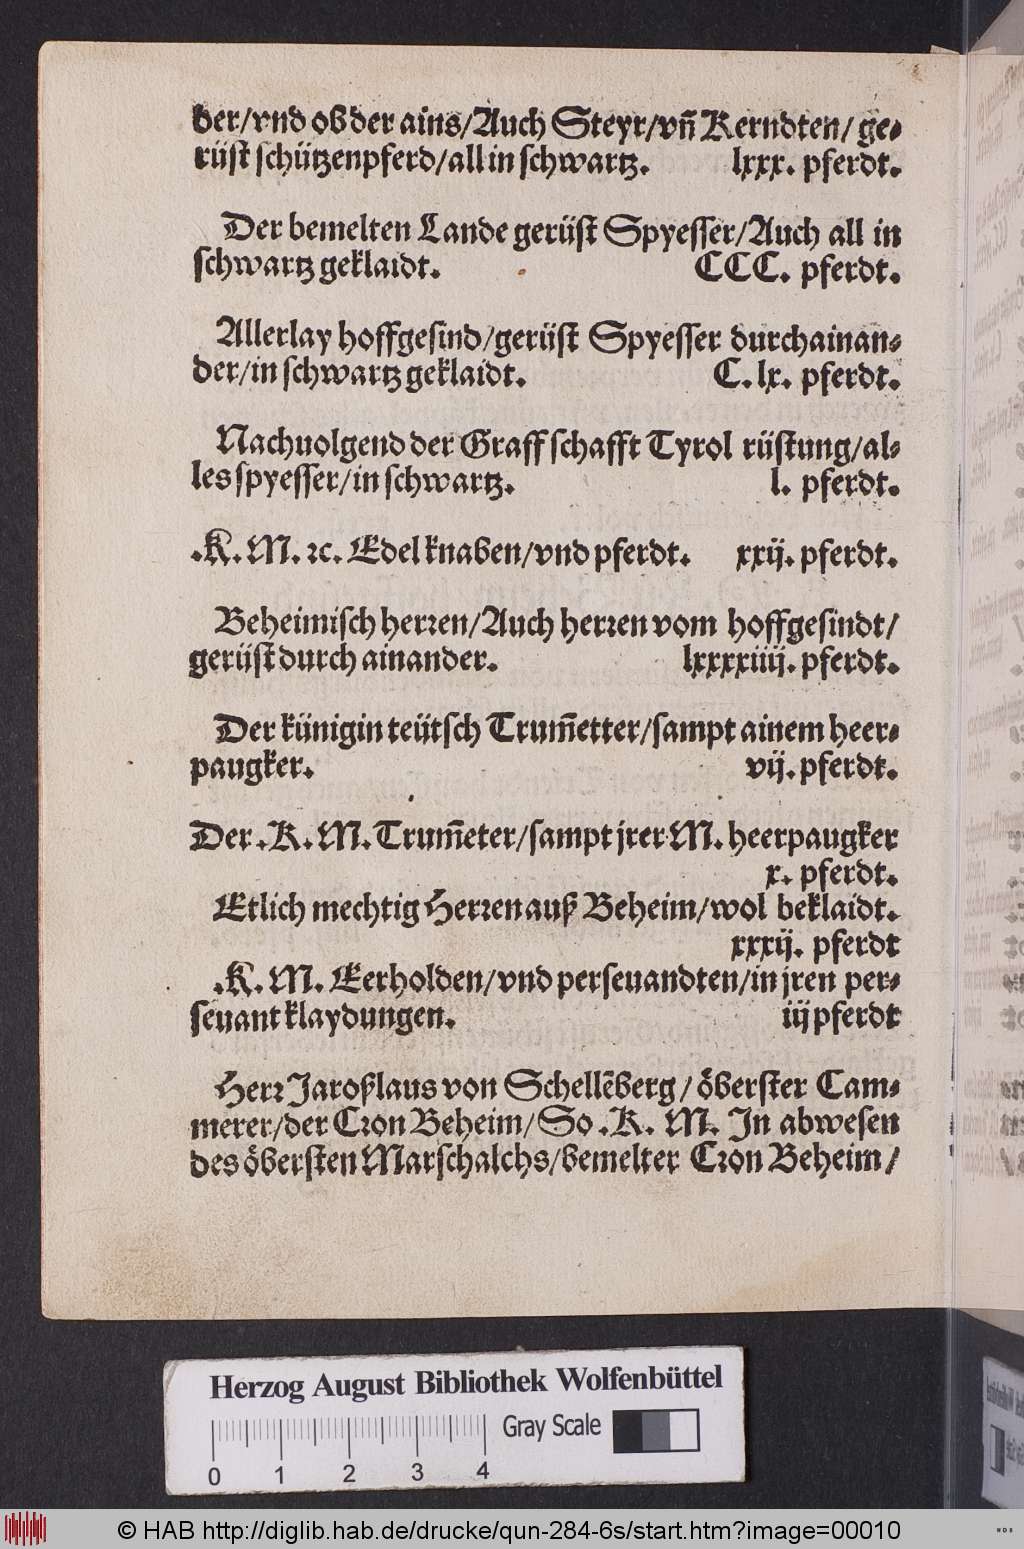 der/vnd ob der ains/Auch Steyr/vn̄ Kerndten/ ge⸗
rüst schützenpferd/all in schwartz. lxxx. pferdt.
Der bemelten Lande gerüst Spyesser/Auch all in
schwartz geklaidt. CCC. pferdt.
Allerlay hoffgesind/gerüst Spyesser durchainan⸗
der/in schwartz geklaidt. C. lx. pferdt.
Nachuolgend der Graffschafft Tyrol rüstung/al⸗
les spyesser/in schwartz. l. pferdt.
.K. M. ꝛc. Edelknaben/vnd pferdt. xxij. pferdt.
Beheimisch herꝛen/Auch herꝛen vom hoffgesindt/
gerüst durch ainander. lxxxxiiij. pferdt.
Der künigin teütsch Trum̄etter/sampt ainem heer⸗
paugker. vij. pferdt.
Der .K. M. Trum̄eter/sampt jrer M. heerpaugker
x. pferdt.
Etlich mechtig Herꝛen auß Beheim/wol beklaidt.
xxxij. pferdt
.K. M. Eerholden/vnd perseuandten/in jren per⸗
seuant klaydungen. iij pferdt
Herꝛ Jaroßlaus von Schellēberg/ öberster Cam⸗
merer/der Cꝛon Beheim/So .K. M. In abwesen
des öbersten Marschalchs/bemelter Cꝛon Beheim/
Herzog August Bibliothek Wolfenbüttel
Gray Scale
0 1 2 3 4
© HAB http://diglib.hab.de/drucke/qun-284-6s/start.htm?image=00010